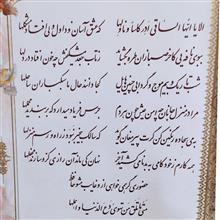 الا یا ایها الساقی ادر کاسا و ناولها که عشق آسان نمود اول ولی افتاد مشکلها
ببوی نافه‌ای کاخر صبا زان طره بگشاید ز تاب جعد مشکینش چه خون افتاد در دلها
شب تاریک و بیم موج و گردابی چنین هایل کجا دانند حال ما سبکباران ساحلها
مرا در منزل جانان چه امن عیش چون هر دم جرس فریاد میدارد که بربندید محملها
بمی سجاده رنگین کن گرت پیر مغان گوید که سالک بیخبر نبود ز راه و رسم منزلها
همه کارم ز خود کامی به بدنامی کشید آخر نهان کی ماند آن رازی کزو سازند محفلها
حضوری گر همی خواهی ازو غایب مشو حافظ
متی ما تلق من تهوی دع الدنیا و اهملها